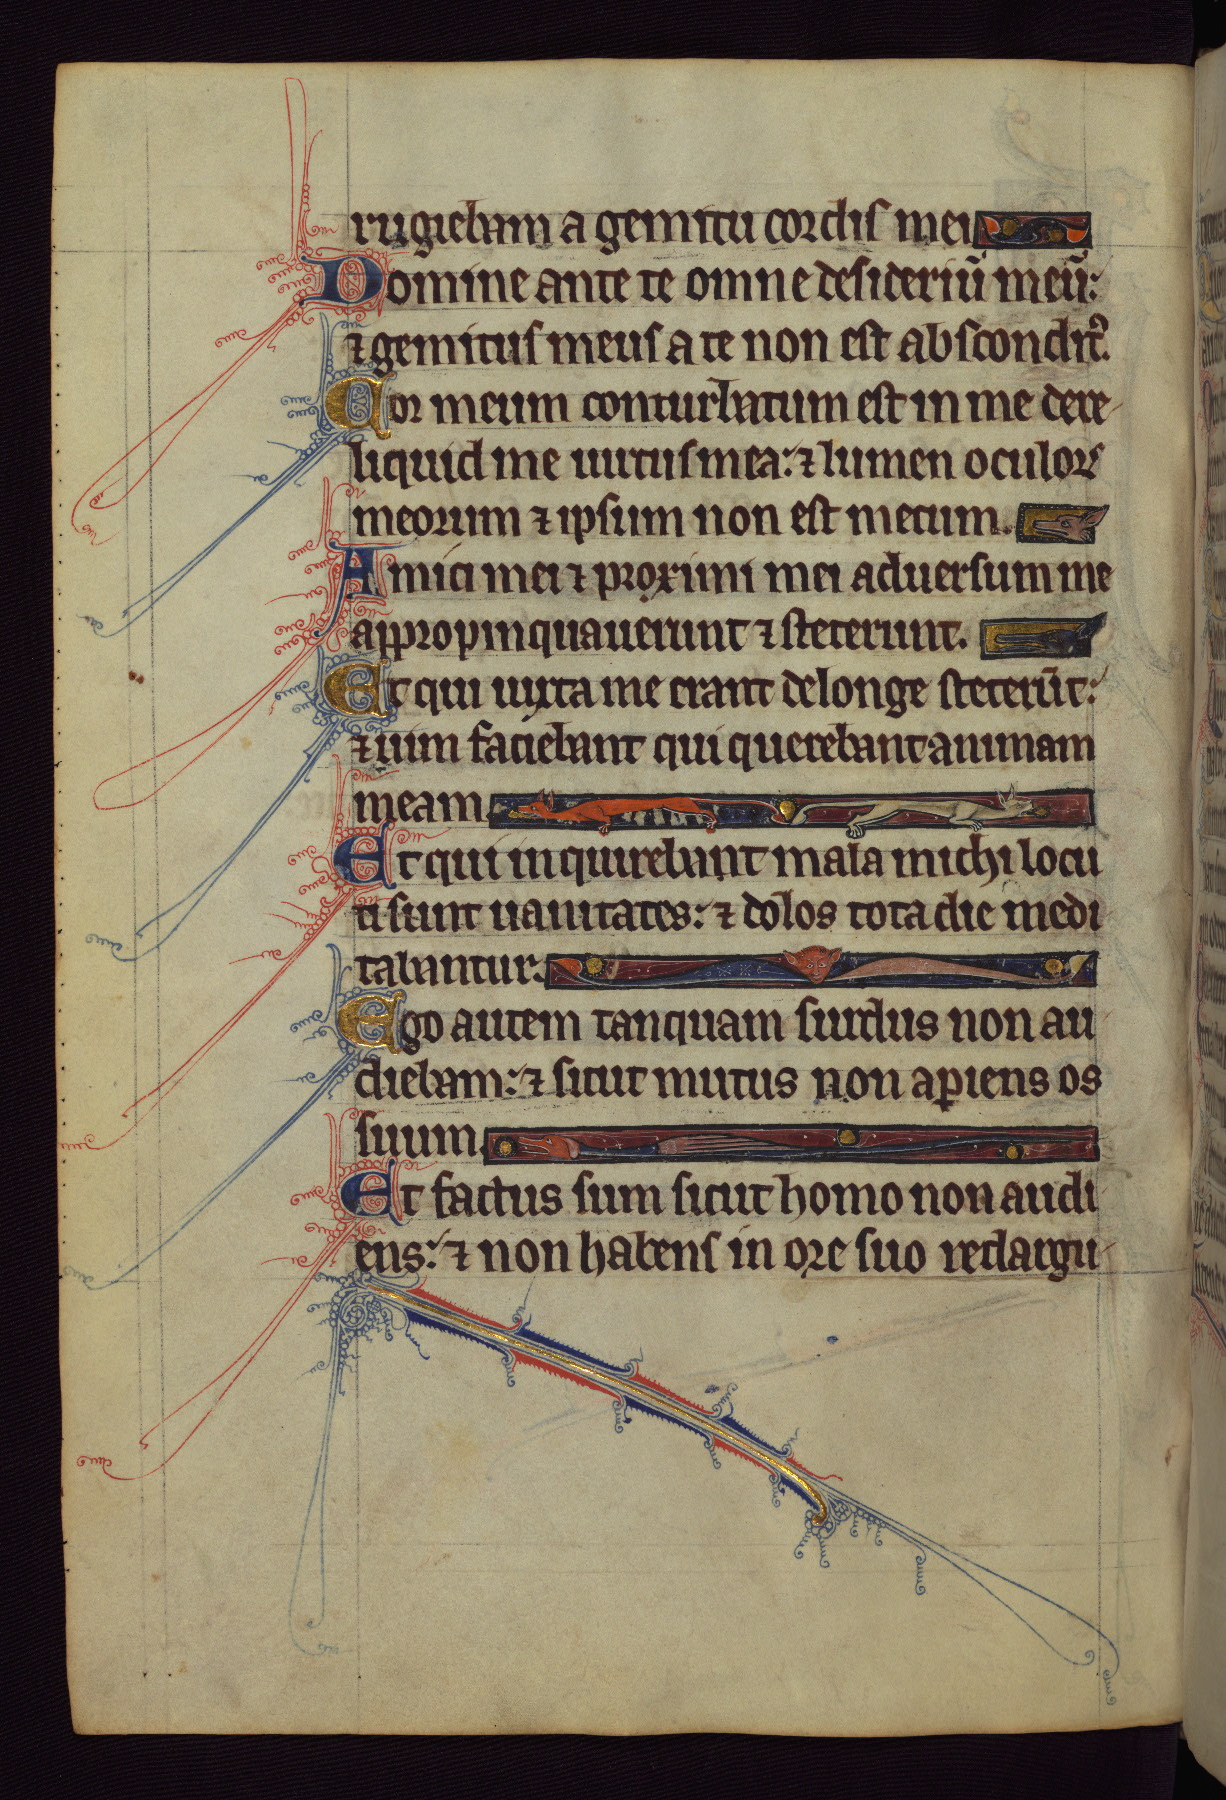 rugiebam a gemitu cordis mei
Domine ante te omne desideriū meū:
⁊ gemitus meus a te non est abscondit᷒.
Cor meum conturbatum est in me dere-
liquid me uirtus mea: ⁊ lumen oculoꝝ
meorum ⁊ ipsum non est mecum.
Amici mei ⁊ proximi mei aduersum me
appropinquauerunt ⁊ steterunt.
Et qui iuxta me erant de longe steterūt:
⁊ uim faciebant qui querebant animam
meam
Et qui inquirebant mala michi locu
ti sunt uanitates: ⁊ dolos tota die medi
tabantur.
Ego autem tanquam surdus non au
diebam: ⁊ sicut mutus non aꝑiens os
suum
Et factus sum sicut homo non audi
ens: ⁊ non habens in ore suo redargu-